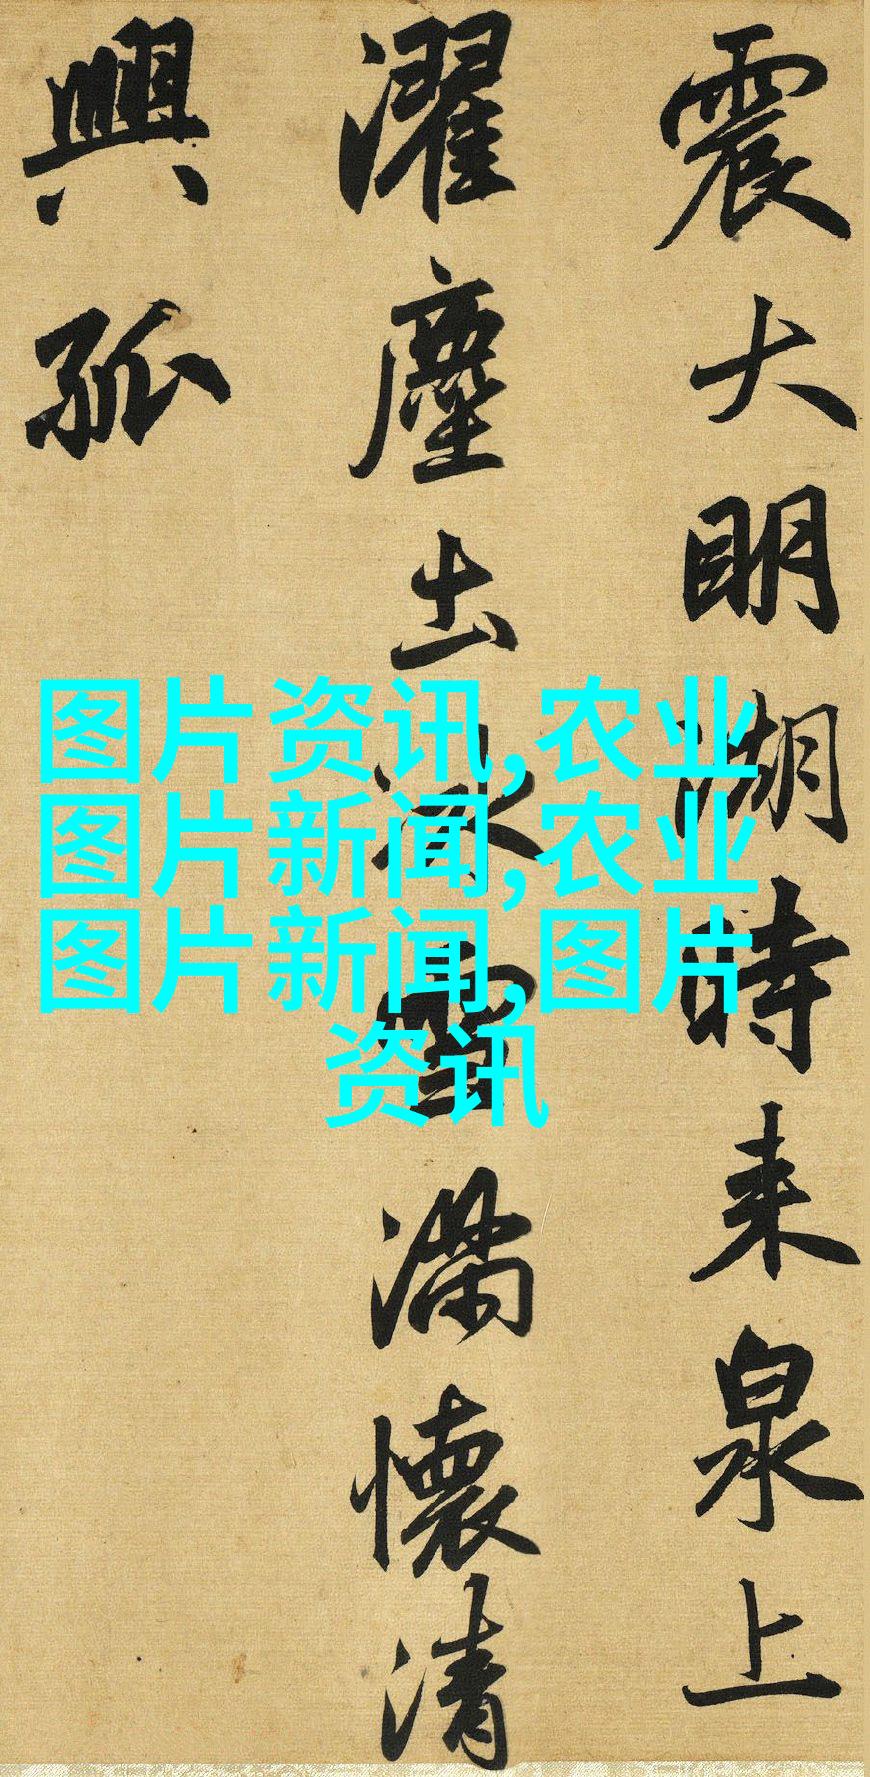 震大明湖時来泉上
濯塵出冰雪滿懷清
興孤
图片资讯,农业
图片新闻,农业
图片新闻,图片
资讯